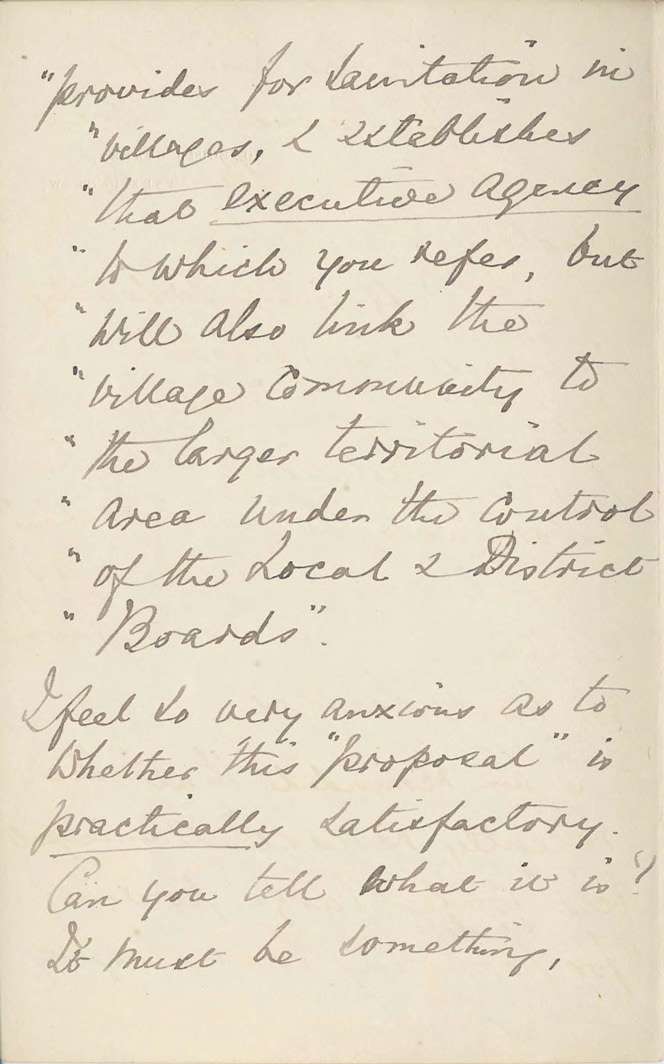 "provides for Sanitation in
"villages, & establishes
"that executive agency
"to which you refer, but
"will also link the
"village Community to
"the larger territorial
"area under the control
"of the Local & District
"Boards".
I feel so very anxious as to
whether this "proposal" is
practically satisfactory.
Can you tell what it is?
It must be something,